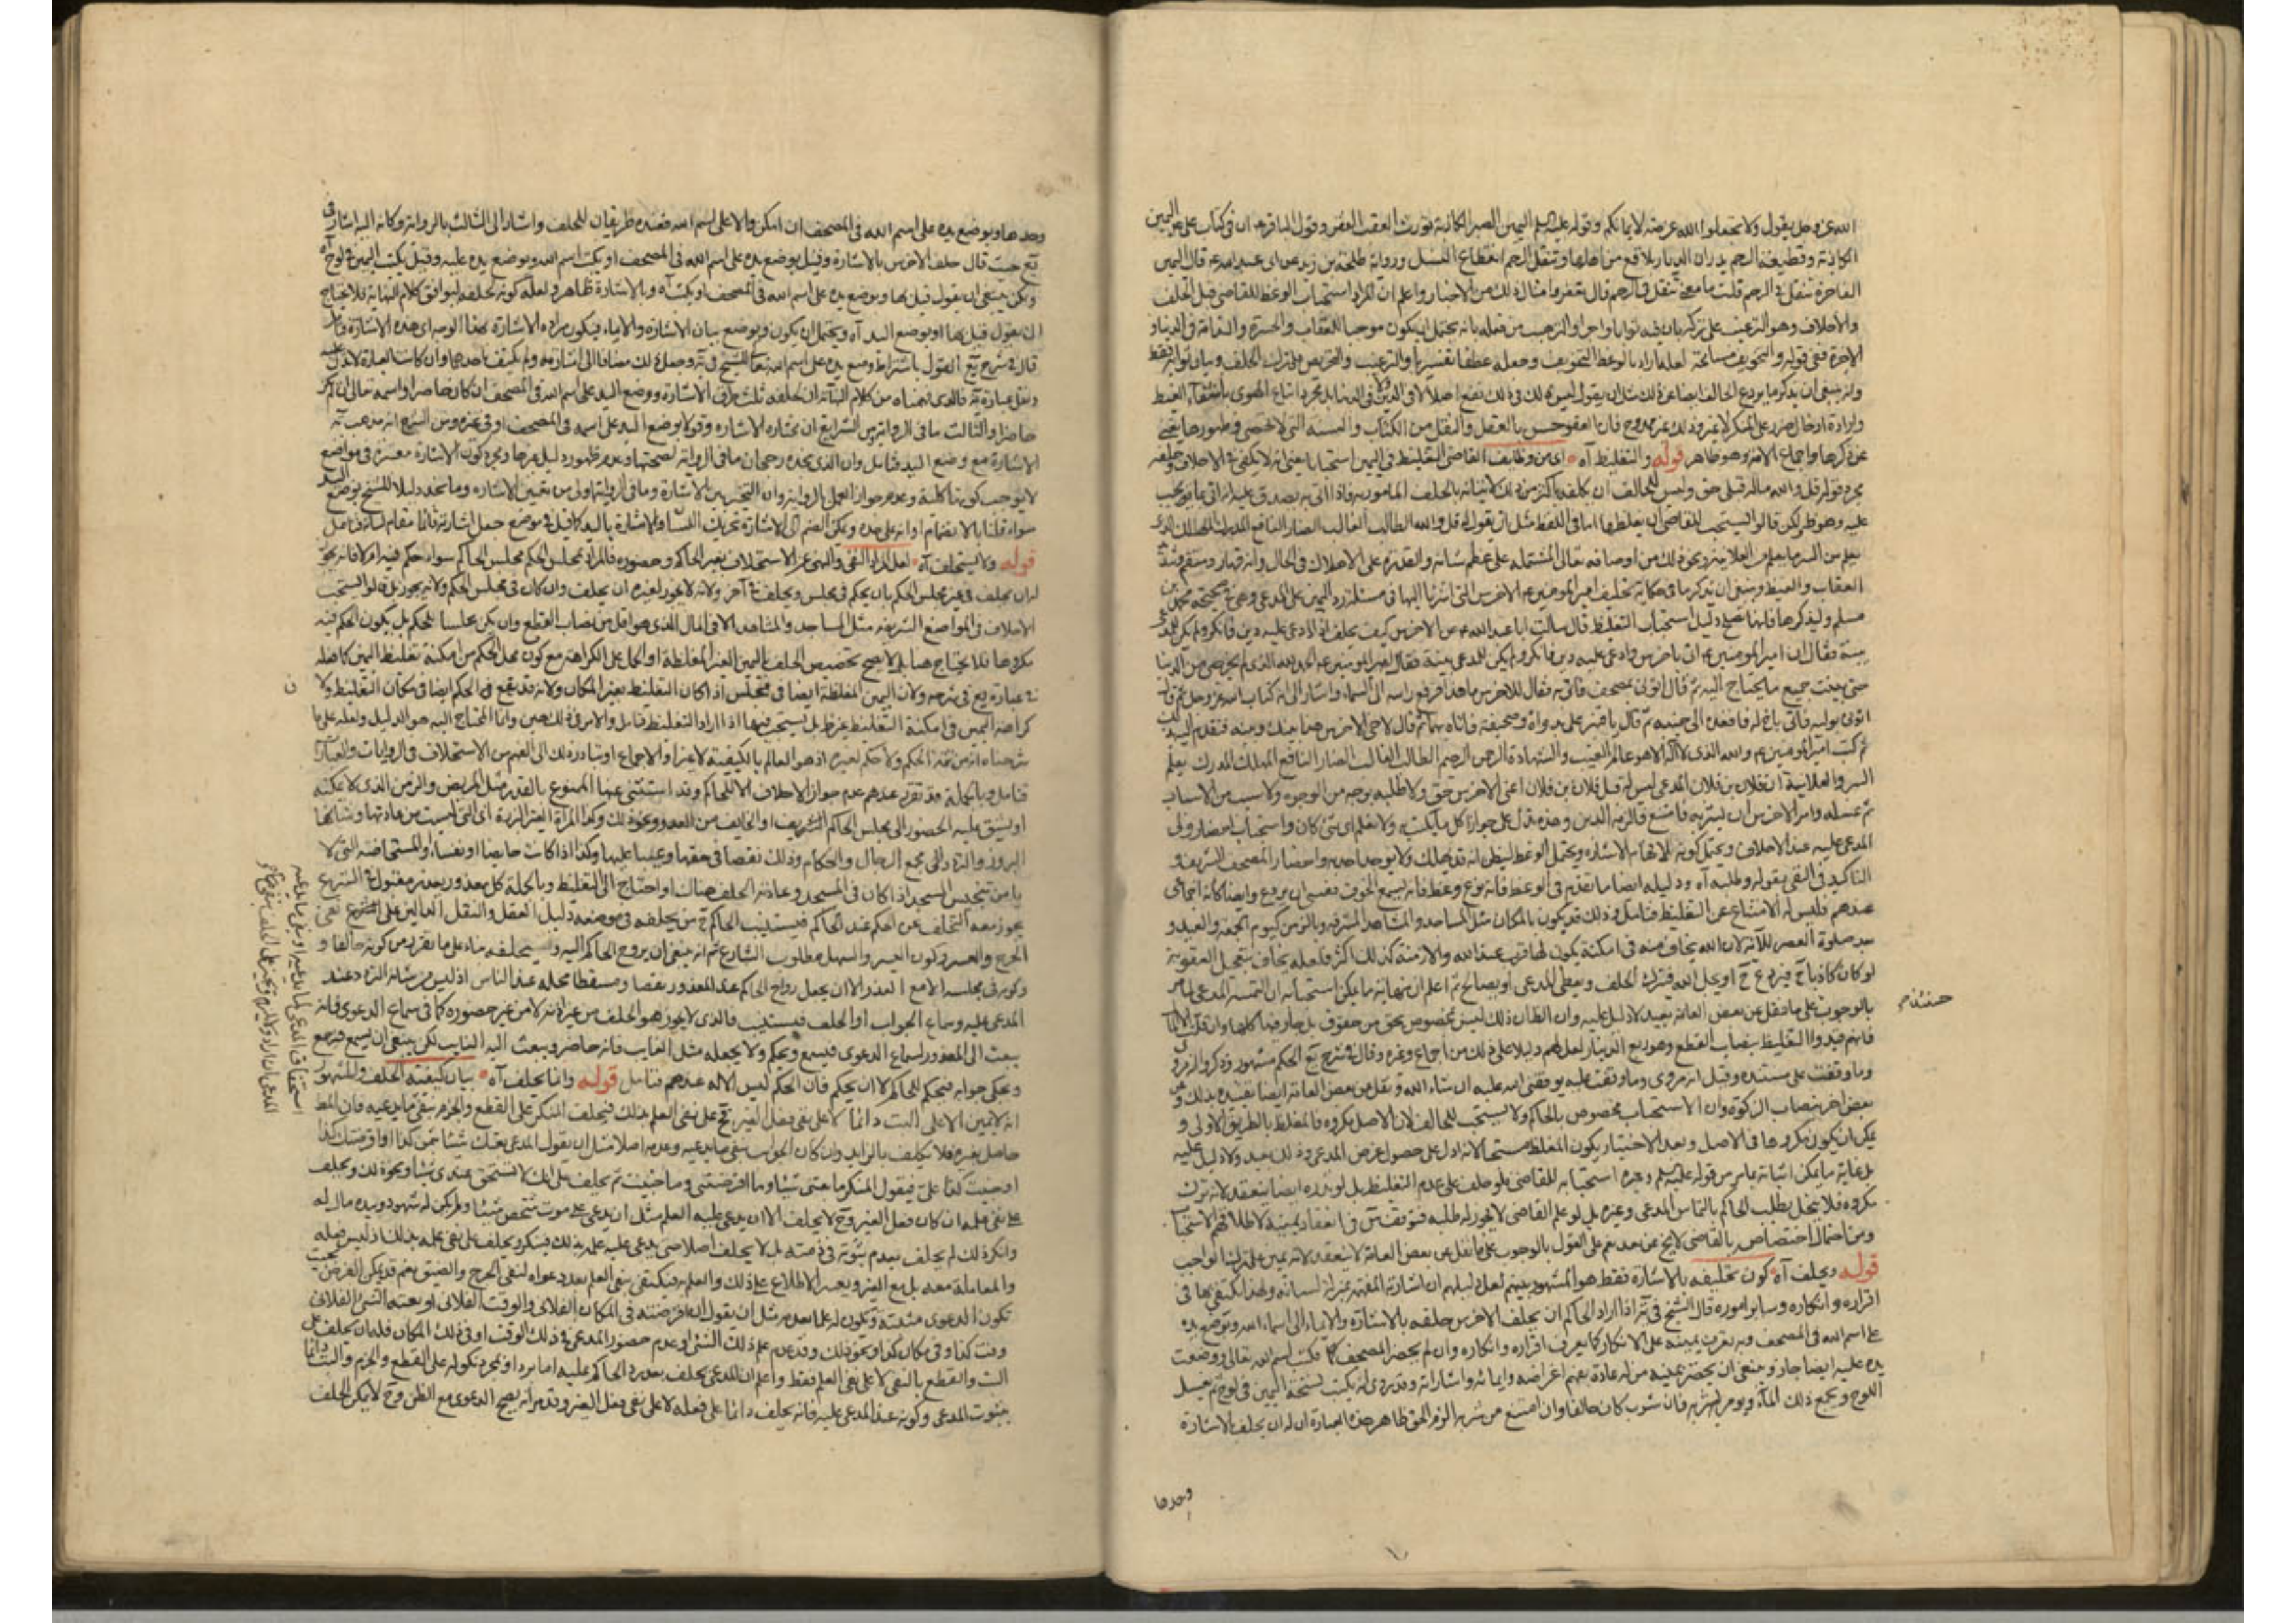 الله عز وجل يقول ولا تجعلوا الله عرضة لايمانكم وقوله عليه السلم اليمين الصبر الكاذبة تورث العقب الفقر وقول الباقر ان في كتاب علي ع اليمين
الكاذبة وقطيعة الرحم يذران الديار بلاقع من اهلها وتنقل الرحم انقطاع النسل ورواية طلحة بن زيد عن ابي عبد الله ع قال اليمين
الفاجرة تنقل في الرحم قلت ما معنى تنقل في الرحم قال تعقر وامثال ذلك من الاخبار واعلم ان المراد استحباب الوعظ للقاضي قبل الحلف
والاحلاف وهو الترغيب على تركه بان فيه ثوابا واجرا والترهيب من فعله بانه يحتمل ان يكون موجبا للعقاب والحسرة والندامة في الدنيا و
الاخرة ففي قوله والتخويف مسامحة لعله اراد بالوعظ التخويف وجعله عطفا تفسيريا والترغيب والتحريص على ترك الحلف وبيان ثوابه فقط
وانه ينبغي ان يذكر ما يردع الحالف ايضا عن ذلك مثل ان يقول ليس لك في ذلك نفع اصلا لا في الدين ولا في الدنيا بل مجرد اتباع الهوى
وارادة ادخال ضرر على المنكر لا غير وذلك غير ممدوح فان العفو حسن بالعقل والنقل من الكتاب والسنة التي لا تحصى وظهورها يغني
عن ذكرها واجماع الامة وهو ظاهر قوله والتغليظ آه اي من وظايف القاضي التغليظ في اليمين استحبابا يعني انه لا يكتفي في الاحلاف
مجرد قوله قل والله ماله قبلي حق وليس للحالف ان يكلفه باكثر من ذلك لاتيانه بالحلف المامور به فاذا اتى به يصدق عليه انه اتى بما يجب
عليه وهو ظ ولكن قالوا يستحب للقاضي ان يغلظها اما في اللفظ مثل ان يقول له قل والله الطالب الغالب الضار النافع المدرك المهلك الذي
يعلم من السر ما يعلم من العلانية ونحو ذلك من اوصافه تعالى المشتملة على عظم شانه والقدرة على الاهلاك في الحال وانه قهار ومنتقم
العقاب والغيظ وينبغي ان يذكر ما في حكاية تحليف امير المومنين ع الاخرس التي اشرنا اليها في مسئلة رد اليمين على المدعي وهي في صحيحة محمد بن
مسلم ولنذكرها فانها تصلح دليل استحباب التغليظ قال سالت ابا عبد الله ع عن الاخرس كيف يحلف اذا ادعي عليه دين فانكر ولم يكن للمدعي
بينة فقال ان امير المومنين ع اتي باخرس وادعي عليه دين فانكر ولم يكن للمدعي بينة فقال امير المومنين ع الحمد لله الذي لم يخرجني من الدنيا
حتى بينت جميع ما يحتاج اليه ثم قال ائتوني بمصحف فاتي به فقال للاخرس ما هذا فرفع راسه الى السماء واشار الى انه كتاب الله عز وجل ثم قال
ائتوني بوليه فاتي باخ له فاقعده الى جنبه ثم قال يا قنبر علي بدواة وصحيفة فاتاه بهما ثم قال لاخي الاخرس
ثم كتب امير المومنين ع والله الذي لا اله الا هو عالم الغيب والشهادة الرحمن الرحيم الطالب الغالب الضار النافع المهلك المدرك يعلم
السر والعلانية ان فلان بن فلان المدعي ليس له قبل فلان بن فلان اعني الاخرس حق ولا طلبة بوجه من الوجوه ولا سبب من الاسباب
ثم غسله وامر الاخرس ان يشربه فامتنع فالزمه الدين وهذه تدل على جواز اكل ما يكتب ولا نعلم اي شئ كان واستحباب احضار ولي
المدعى عليه عند الاحلاف ويحتمل كونه للافهام بالاشارة ويحتمل الوعظ واحضار المصحف الشريف و
التاكيد في النفي بقوله وطلبه آه
عندهم فليس له الامتناع عن التغليظ فتامل وذلك قد يكون بالمكان مثل المساجد والمشاهد المشرفة وبالزمن كيوم الجمعة والعيد و
بعد صلوة العصر للآية لان الله يخاف منه في امكنة يكون لها قرب عند الله والازمنة كذلك اكثر فلعله يخاف بتعجيل العقوبة
لو كان كاذبا ح فيردع ح او يجل الله فيترك الحلف ويعطي المدعي او يصالح ثم اعلم ان
بالوجوب على ما نقل عن بعض العامة بعيد لا دليل عليه وان الظاهر ان ذلك ليس مخصوص بحق من حقوق بل جار فيها كلها
فانهم قيدوا التغليظ بنصاب القطع وهو ربع الدينار لعل لهم دليلا على ذلك من اجماع وغيره وقال في شرح يع الحكم مشهور وذكروا انه مروي
وما وقفت على مستنده وقيل انه مروي وما وقفت عليه يوفقني الله عليه ان شاء الله ونقل عن بعض العامة ايضا تقييده بذلك وعن
بعض اخر بنصاب الزكوة وان الاستحباب مخصوص بالحاكم ولا يستحب للحالف لان الاصل مكروه فالمغلظ بالطريق الاولى و
يمكن ان يكون مكروها في الاصل وبعد الاختيار يكون المغلظ مستحبا لانه ادل على حصول غرض المدعي وذلك بعيد ولا دليل عليه
بل غاية ما يمكن اثباته بما مر من قوله عليه السلم وغيره استحبابه للقاضي فلو حلف على عدم التغليظ بل لو نذره ايضا ينعقد لانه ترك
مكروه فلا ينحل بطلب الحاكم بالتماس المدعي وغيره بل لو علم القاضي لا يجوز له طلبه
ومن احتمال اختصاص بالقاضي لا يخ عن بعد نعم على القول بالوجوب على ما نقل عن بعض العامة لا ينعقد لانه يمين على ترك الواجب
قوله ويحلف آه كون تحليفه بالاشارة فقط هو المشهور بينهم لعل دليلهم ان اشارته المفهمة بمنزلة لسانه ولهذا يكتفي بها في
اقراره وانكاره وساير اموره قال الشيخ في ية اذا اراد الحاكم ان يحلف الاخرس حلفه بالاشارة والايماء الى اسماء الله وبوضع يده
على اسم الله في المصحف وبه يعرف يمينه على الانكار كما يعرف اقراره وانكاره وان لم يحضر المصحف كتب اسم الله تعالى ووضعت
يده عليه ايضا جاز وينبغي ان يحضر يمينه من له عادة بفهم اغراضه وايمائه واشاراته وقد روي انه يكتب نسخة اليمين في لوح ثم يغسل
اللوح ويجمع ذلك الماء ويؤمر بشربه فان شرب كان حالفا وان امتنع من شربه الزم الحق ظاهر هذه العبارة ان له ان يحلف بالاشارة
وحدها
حينئذ
وحدها وبوضع يده على اسم الله في المصحف ان امكن والا على اسم الله فعنده طريقان للحلف واشار الى الثالث بالرواية وكانه اليه اشار في
يع حيث قال حلف الاخرس بالاشارة وقيل يوضع يده على اسم الله في المصحف او يكتب اسم الله ويوضع يده عليه وقيل يكتب اليمين في لوح آه
ولكن ينبغي ان يقول قبلها وبوضع يده على اسم الله في المصحف او يكتب آه وبالاشارة ظاهر ولعله كونه ليوافق كلام النهاية فلا يحتاج
ان يقول قبلها او بوضع اليد آه ويحتمل ان يكون وبوضع بيان الاشارة والايماء فيكون مراده الاشارة بهذا الوجه اي هذه الاشارة
قال في شرح يع القول باشتراط وضع يده على اسم الله تعالى للشيخ في ية وجعل ذلك مضافا الى اشارته ولم يكتف باحدهما وان كانت العبارة لا تدل عليه
ونقل عبارة ية فالذي فهمناه من كلام النهاية ان تحليفه ثلث طرق الاشارة ووضع اليد على اسم الله في المصحف ان كان حاضرا واسمه تعالى ان لم يكن
حاضرا والثالث ما في الرواية
الاشارة مع وضع اليد فتامل وان الذي نجده رجحان ما في الرواية لصحتها وعدم ظهور دليل غيرها ومجرد كون الاشارة معتبرة في مواضع
لا يوجب كونها كلية وعدم جواز العمل بالرواية وان التخيير بين الاشارة وما في الرواية اولى من تعيين الاشارة وما نجد دليلا للشيخ بوضع اليد
سواء قلنا بالانضمام او انه على حده
قوله ولا يستحلف آه لعل المراد النفي والنهي عن الاستحلاف بغير الحاكم وحضوره فالمراد بمجلس الحكم مجلس الحاكم سواء حكم فيه ام لا فانه يجوز
له ان يحلف في غير مجلس الحكم بان يحكم في مجلس ويحلف في آخر ولانه لا يجوز لغيره ان يحلف وان كان في مجلس الحكم
الاحلاف في المواضع الشريفة مثل المساجد والمشاهد الا في المال الذي هو اقل من نصاب القطع وان لم يكن مجلسا للحكم بل يكون الحكم فيه
مكروها فلا يحتاج هنا بل لا يصح تخصيص الحلف باليمين الغير المغلظة او الحمل على الكراهة مع كون محل الحكم من امكنة تغليظ اليمين كما فعله
في عبارة يع في شرحه ولان اليمين المغلظة ايضا في مجلس اذا كان التغليظ بغير المكان ولانه قد يقع الحكم ايضا في مكان التغليظ ولا
كراهة اليمين في امكنة التغليظ غير ظ بل يستحب فيها اذا اراد التغليظ فتامل والامر في ذلك هين وانما المحتاج اليه هو الدليل ولعله على ما
شرحناه انه من تتمة الحكم ولا حكم لغيره اذ هو العالم بالكيفية لا غير او الاجماع او تبادر ذلك الى الفهم من الاستحلاف في الروايات والعبارات
فتامل وبالجملة قد تقرر عندهم عدم جواز الاحلاف الا للحاكم وقد استثني عنها الممنوع بالعذر مثل المريض والزمن الذي لا يمكنه
او يشق عليه الحضور الى مجلس الحاكم الشريف او الخايف من العدو ونحو ذلك وكذا المراة الغير البرزة اي التي ليست من عادتها وشانها
البروز والتردد الى مجمع الرجال والحكام وذلك نقصا في حقها وعيبا عليها وكذا اذا كانت حايضا او نفساء او المستحاضة التي لا
يامن تنجيس المسجد اذا كان في المسجد وعادته الحلف هناك او احتاج الى التغليظ وبالجملة كل معذور بعذر مقبول في الشرع
يجوز معه التخلف عن الحكم عند الحاكم فيستنيب الحاكم ح من يحلفه في موضعه دليل العقل والنقل الدالين على نفي
الحرج والعسر وكون اليسر والسهل مطلوب الشارع ثم انه ينبغي ان يروح الحاكم اليه ويستحلفه بناء على ما تقرر من كونه حالفا و
وكونه في مجلسه الا مع العذر الا ان يجعل رواح الحاكم عند المعذور نقصا ومسقطا محله عند الناس اذ ليس من شانه التردد عند
المدعى عليه وسماع الجواب او الحلف فيستنيب فالذي لا يجوز هو الحلف من غير اذنه لا من غير حضوره كما في سماع الدعوى فانه
يبعث الى المعذور لسماع الدعوى فيسمع ويحكم ولا يجعله مثل الغايب فانه حاضر ويبعث اليه النايب لكن ينبغي ان يسمع
ويحكي جوابه فيحكم الحاكم لا ان يحكم فان الحكم ليس الا له عندهم فتامل قوله وانما يحلف آه بيان كيفية الحلف والمشهور
انه لا يمين الا على البت دائما لا على نفي فعل الغير فح على نفي العلم بذلك فيحلف المنكر على القطع والجزم بنفي ما يدعيه
حاصل بغيره فلا يكلف بالزايد وان كان الجواب بنفي ما يدعيه وعدمه اصلا مثل ان يقول المدعي بعتك شيئا ثمن كذا او اقرضتك كذا
او جنيت كذا علي فيقول المنكر ما بعتني شيئا وما اقرضتني وما جنيت ثم يحلف على انك لا تستحق عندي شيئا ونحو ذلك ويحلف
على نفي علمه ان كان فعل الغير وح لا يحلف الا ان يدعي عليه العلم مثل ان يدعي على موت شخص شيئا ولم يكن له شهود وبيده مال له
وانكر ذلك لم يحلف بعدم ثبوته في ذمته بل لا يحلف اصلا حتى يدعي عليه علمه بذلك فينكر ويحلف على نفي علمه بذلك اذ ليس فعله
والمعاملة معه بل مع الغير ويعسر الاطلاع على ذلك والعلم به فيكتفي بنفي العلم بعد دعواه لنفي الحرج والضيق نعم قد يمكن الفرض بحيث
تكون الدعوى مثبتة ويكون له علما بعدمه مثل ان يقول انه اقرضته في المكان الفلاني والوقت الفلاني او بعته الشئ الفلاني
وقت كذا وفي مكان كذا ونحو ذلك وقد علم عدم ذلك الشئ اي عدم حضور المدعي في ذلك الوقت او في ذلك المكان فله ان يحلف على
البت والقطع بالنفي لا على نفي العلم فقط واعلم ان المدعي يحلف بعد رد الحاكم عليه اما برد او بمجرد نكوله على القطع والجزم والبت دائما
بثبوت المدعى وكونه عند المدعى عليه فانه يحلف دائما على فعله لا على نفي فعل الغير وقد مر انه يصح الدعوى مع الظن وح لا يمكن الحلف